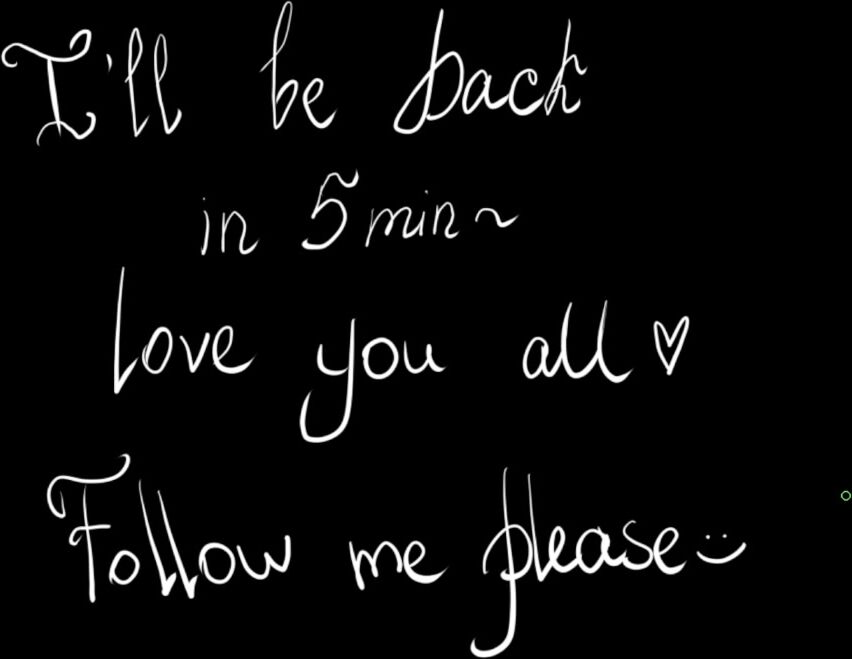 I'll be back
in 5 min~
Love you all ♡
Follow me please :)